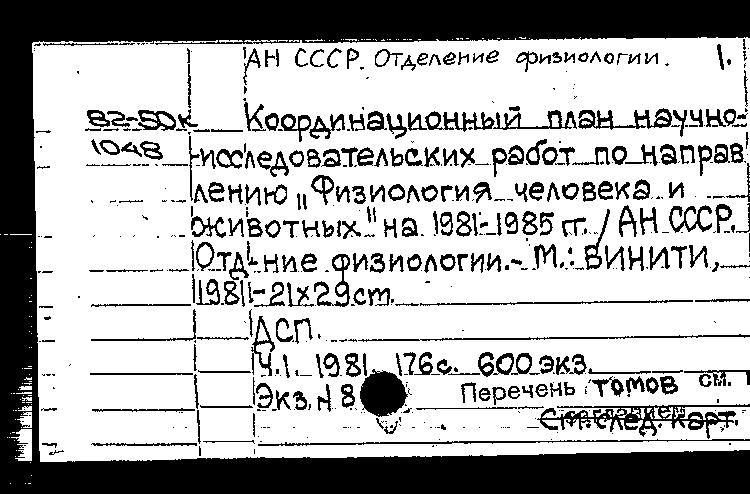 АН СССР. Отделение физиологии. 1.
82-50к Координационный план научно-
1048 -исследовательских работ по направ
лению „Физиология человека и
животных" на 1981-1985 гг. / АН СССР.
Отд-ние физиологии.- М.: ВИНИТИ,
1981 - 21х29 cm.
ДСП.
Ч.1. 1981. 176с. 600 экз.
Экз. N 8 Перечень томов см.
См. след. карт.